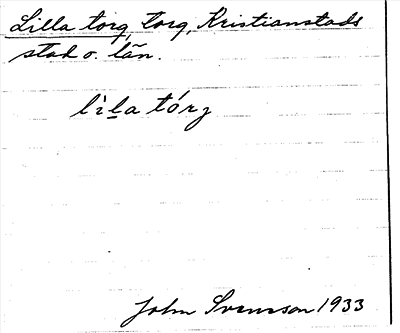 Lilla torg, torg, Kristianstads
stad o. län.
lìla tórj
John Svenson 1933